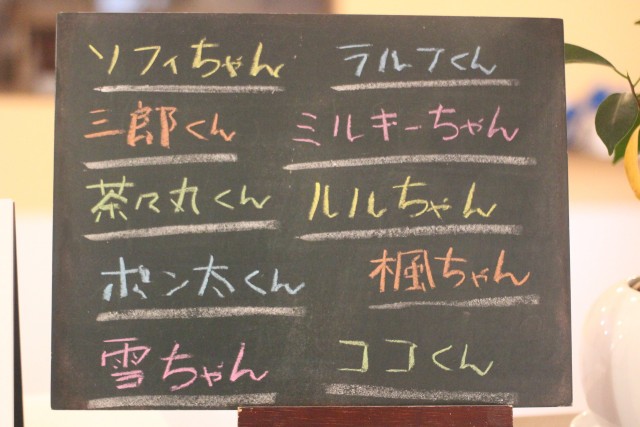 ソフィちゃん ラルフくん
三郎くん ミルキーちゃん
茶々丸くん ルルちゃん
ポン太くん 楓ちゃん
雪ちゃん ココくん